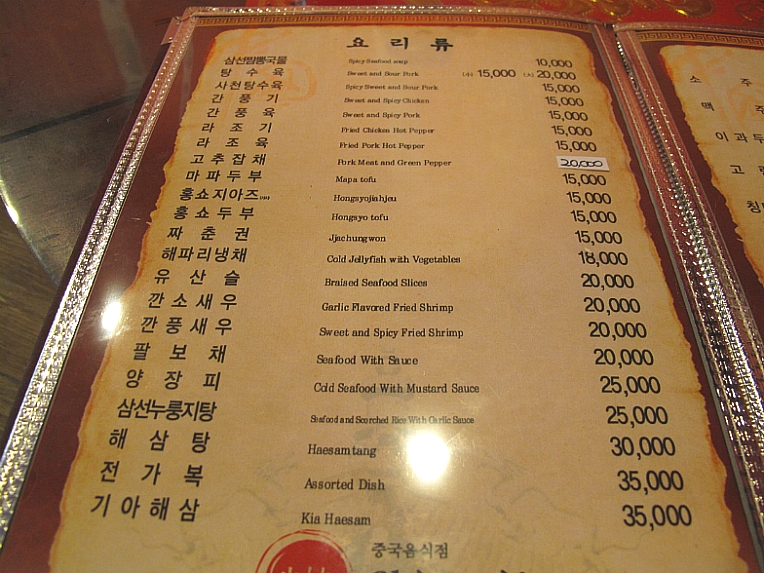 요 리 류
삼선짬뽕국물 Spicy Seafood soup 10,000
탕 수 육 Sweet and Sour Pork (小) 15,000 (大) 20,000
사천탕수육 Spicy Sweet and Sour Pork 15,000
간 풍 기 Sweet and Spicy Chicken 15,000
간 풍 육 Sweet and Spicy Pork 15,000
라 조 기 Fried Chicken Hot Pepper 15,000
라 조 육 Fried Pork Hot Pepper 15,000
고추잡채 Pork Meat and Green Pepper 20,000
마파두부 Mapa tofu 15,000
홍쇼지아즈 Hongsyojiahjeu 15,000
홍쇼두부 Hongsyo tofu 15,000
짜 춘 권 Jjachungwon 15,000
해파리냉채 Cold Jellyfish with Vegetables 18,000
유 산 슬 Braised Seafood Slices 20,000
깐소새우 Garlic Flavored Fried Shrimp 20,000
깐풍새우 Sweet and Spicy Fried Shrimp 20,000
팔 보 채 Seafood With Sauce 20,000
양 장 피 Cold Seafood With Mustard Sauce 25,000
삼선누룽지탕 Seafood and Scorched Rice With Garlic Sauce 25,000
해 삼 탕 Haesamtang 30,000
전 가 복 Assorted Dish 35,000
기아해삼 Kia Haesam 35,000
중국음식점
소 주
맥 주
이과두
고
칭